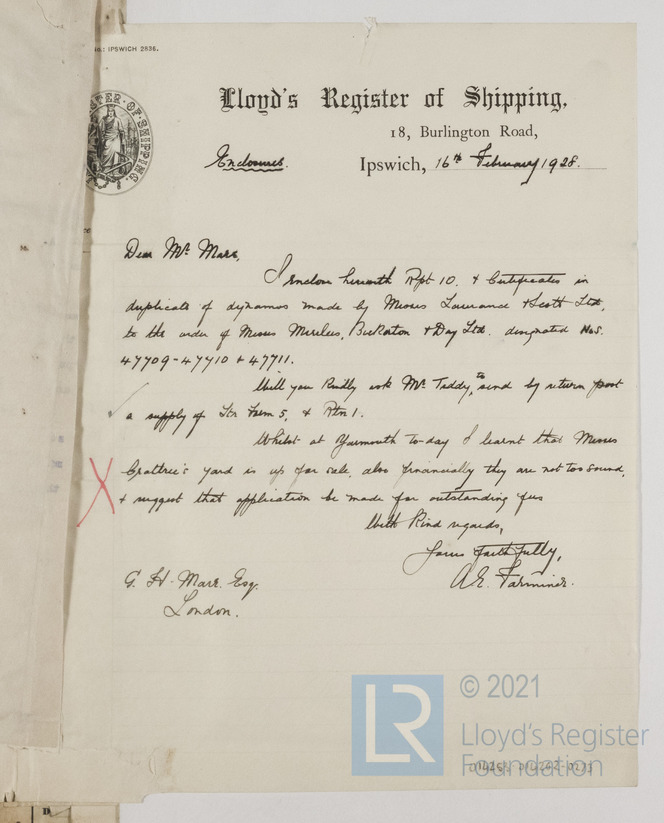 No.: IPSWICH 2836.
Lloyd's Register of Shipping,
18, Burlington Road,
Enclosures.
Ipswich, 16th February 1928.
Dear Mr Marr,
I enclose herewith Rpt 10. & Certificates in
duplicate of dynamos made by Messrs Laurance & Scott Ltd,
to the order of Messrs Mirrlees, Bickerton & Day Ltd. designated Nos.
47709-47710 & 47711.
Will you kindly ask Mr Teddy, to send by return post
a supply of Form 5, & Rtn 1.
Whilst at Yarmouth to-day I learnt that Messrs
Crabtree's yard is up for sale, also financially they are not too sound,
& suggest that application be made for outstanding fees
With kind regards,
Yours faithfully,
A.E. Farminer.
G. H. Marr. Esq.
London.
LR
© 2021
Lloyd's Register
Foundation